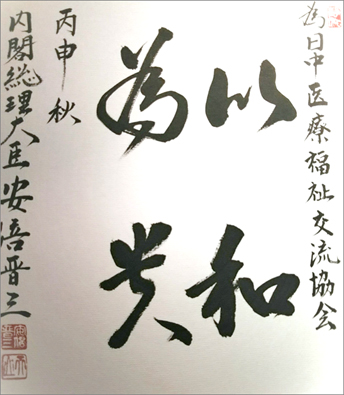 為日中医療福祉交流協会
以和
為貴
丙申秋
内閣総理大臣安倍晋三